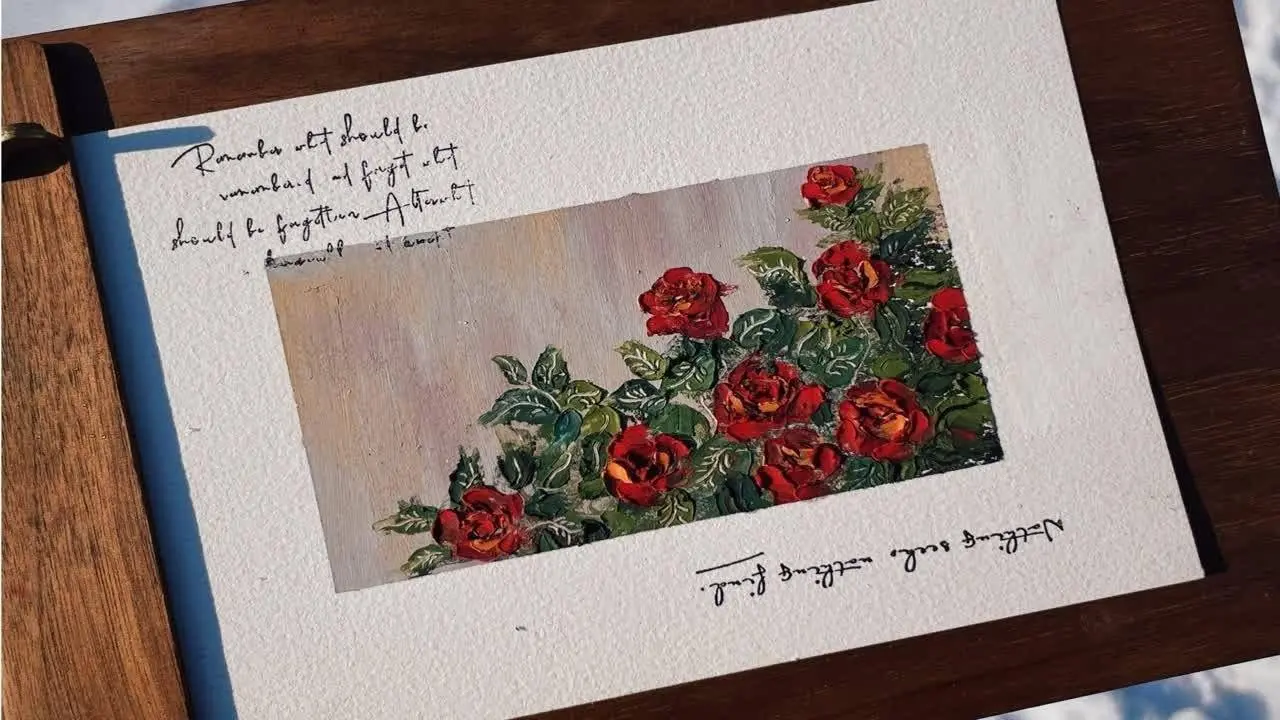 Remember what should be
remembered and forget what
should be forgotten Alter what
Nothing seeks nothing find.